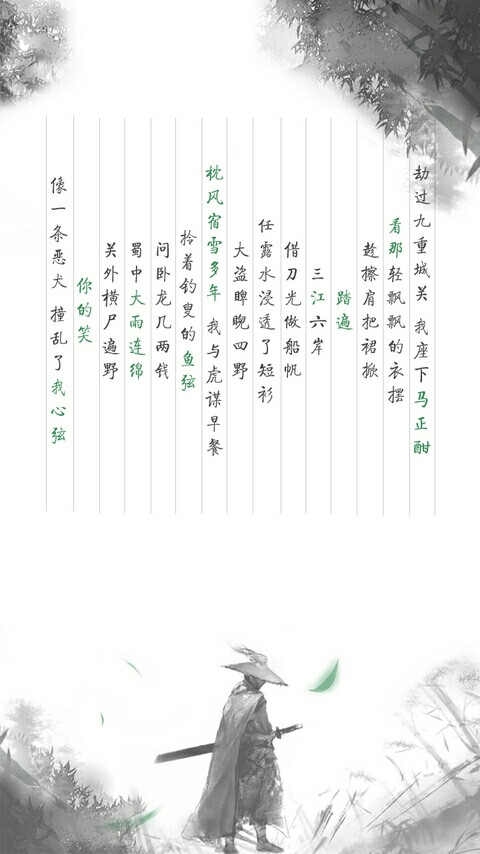 劫过九重城关 我座下马正酣
看那轻飘飘的衣摆
趁擦肩把裙掀
踏遍
三江六岸
借刀光做船帆
任露水浸透了短衫
大盗睥睨四野
枕风宿雪多年 我与虎谋早餐
拎着钓叟的鱼弦
问卧龙几两钱
蜀中大雨连绵
关外横尸遍野
你的笑
像一条恶犬 撞乱了我心弦